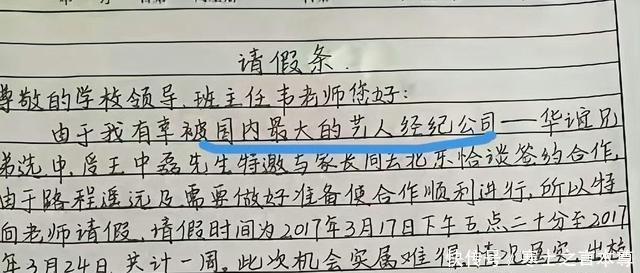 请假条.
尊敬的学校领导、班主任韦老师您好:
由于我有幸被国内最大的艺人经纪公司——华谊兄
弟选中,受王中磊先生特邀与家长同去北京洽谈签约合作,
由于路程遥远及需要做好准备使合作顺利进行,所以特
向老师请假,请假时间为2017年3月17日下午五点二十分至2017
年3月24日,共计一周。此次机会实属难得,情况真实